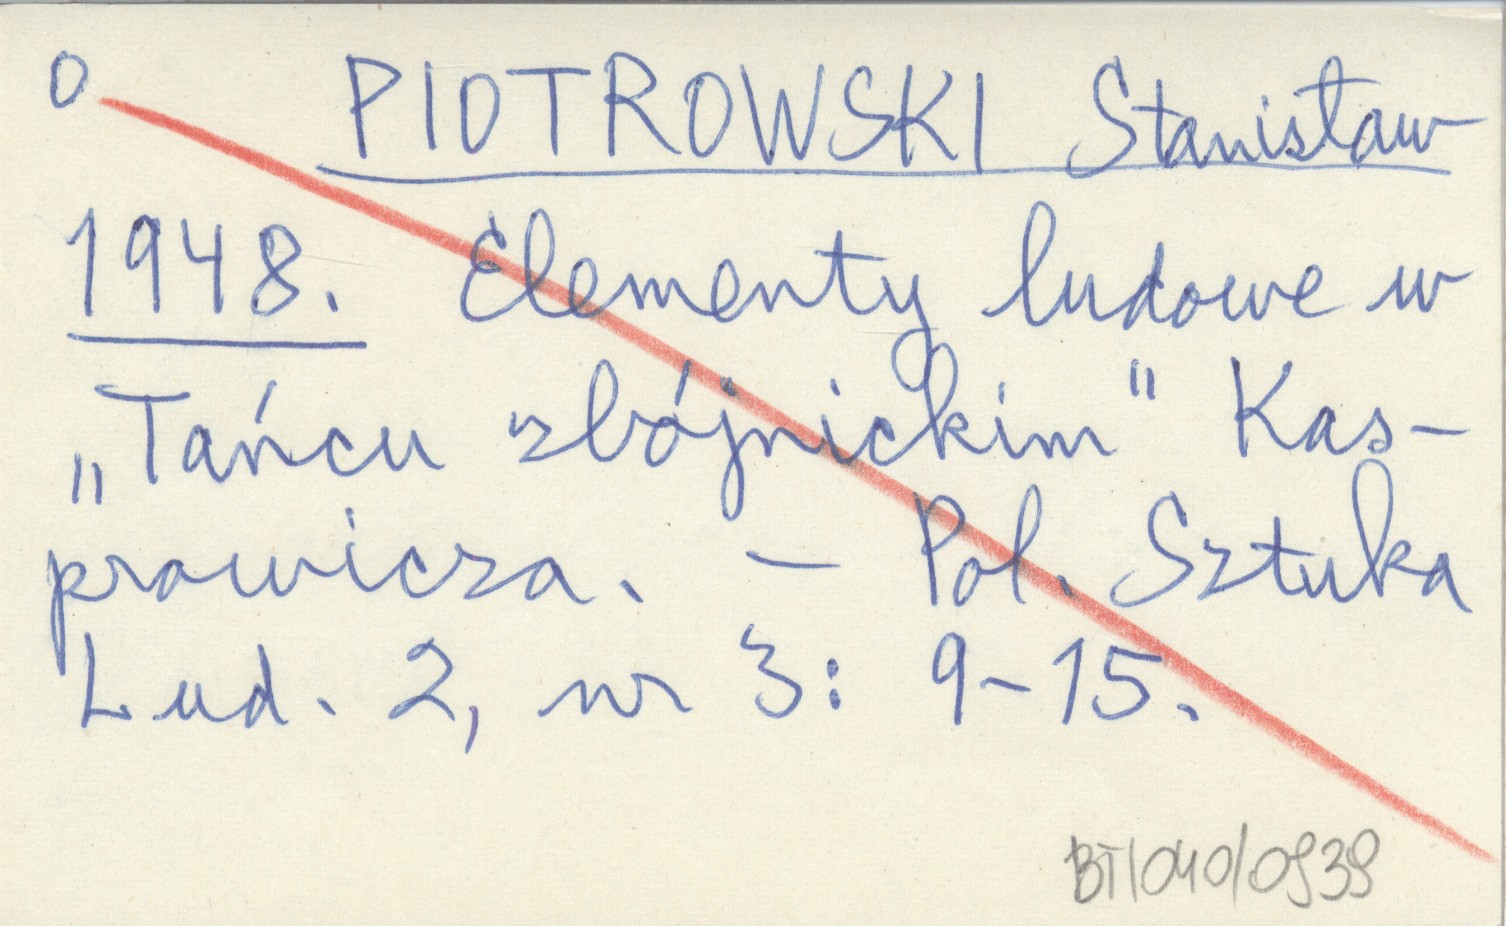 0 PIOTROWSKI Stanisław
1948. Elementy ludowe w
„Tańcu zbójnickim" Kas-
prowicza. — Pol. Sztuka
Lud. 2, nr 3: 9-15.
BT/040/0939